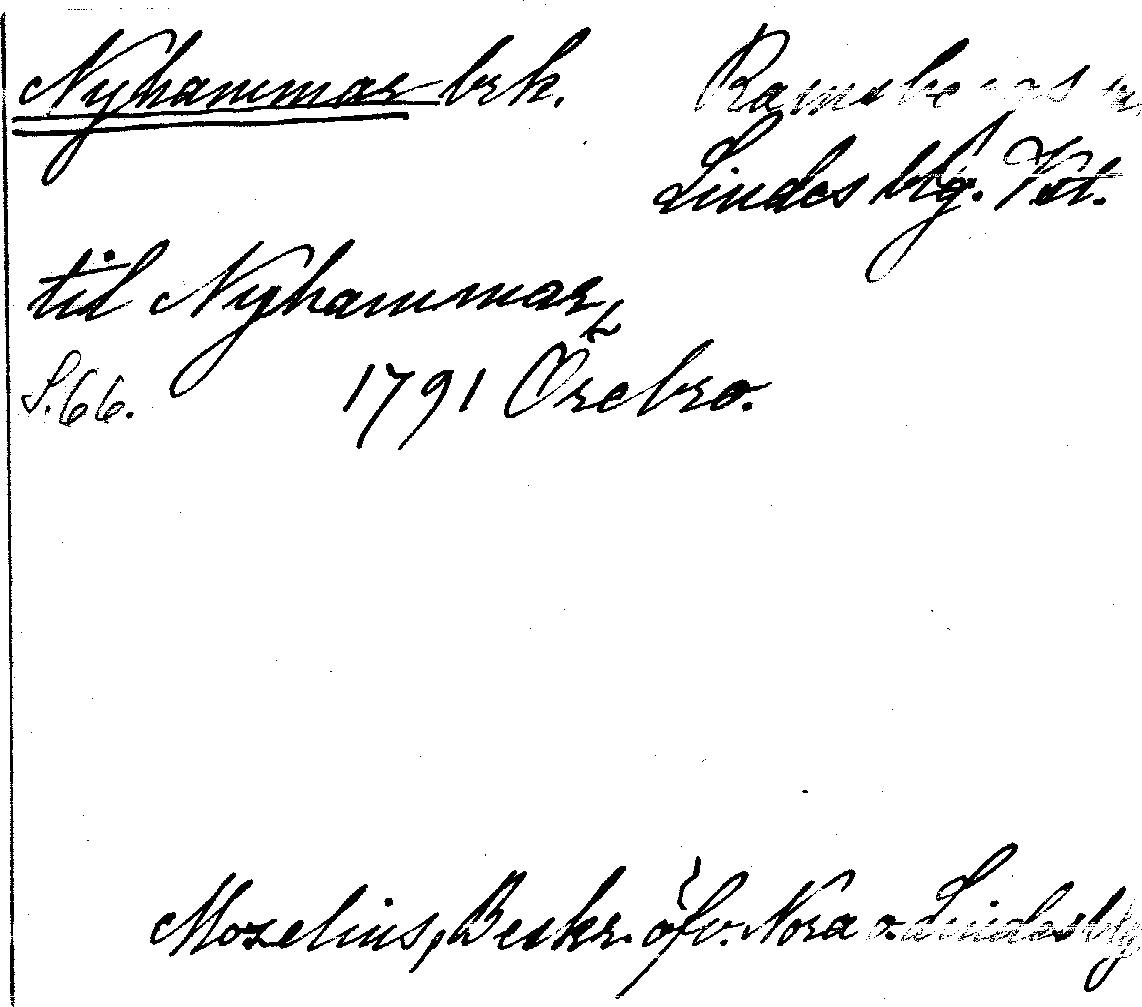 Nyhammar brk. Ramsbergs
Lindes blg. Vst.
till Nyhammar,
S. 66. 1791 Örebro.
Moselius, Beskr. öfv. Nora o. Lindes blg